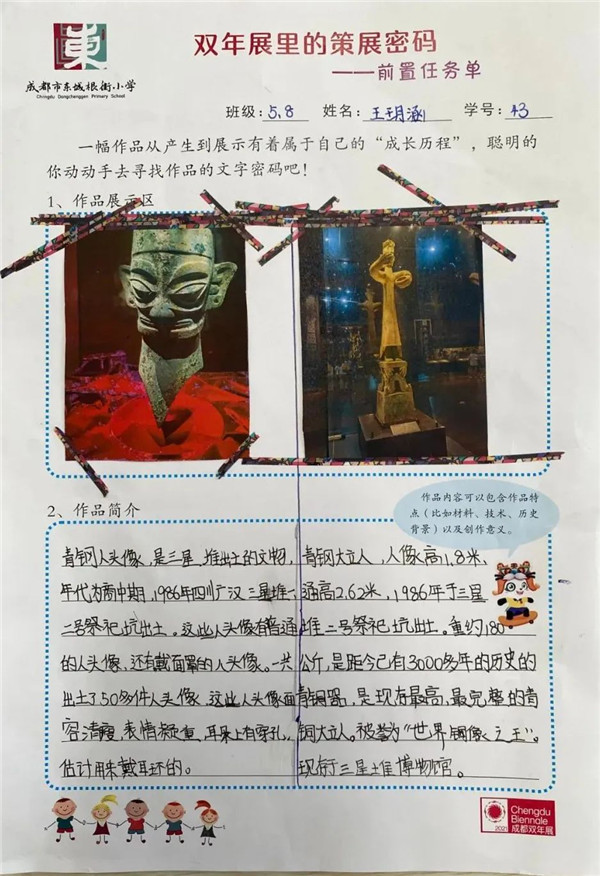 成都市东城根街小学
Chengdu Dongchenggen Primary School
双年展里的策展密码
——前置任务单
班级：5.8 姓名：王玥涵 学号：43
一幅作品从产生到展示有着属于自己的“成长历程”，聪明的
你动动手去寻找作品的文字密码吧！
1、作品展示区
2、作品简介
作品内容可以包含作品特
点（比如材料、技术、历史
背景）以及创作意义。
青铜人头像，是三星堆出土的文物，
年代为商中期，1986年四川广汉三星堆一
二号祭祀坑出土。这些人头像有普通
的人头像，还有戴面罩的人头像。一共
出土了50多件人头像，这些人头像面
容清瘦，表情凝重，耳朵上有穿孔，
估计用来戴耳环的。
青铜大立人，人像高1.8米，
通高2.62米，1986年于三星
堆二号祭祀坑出土。重约180
公斤，是距今已有3000多年的历史的
青铜器，是现存最高，最完整的青
铜大立人。被誉为“世界铜像之王”。
现存于三星堆博物馆。
Chengdu
Biennale
2021 成都双年展